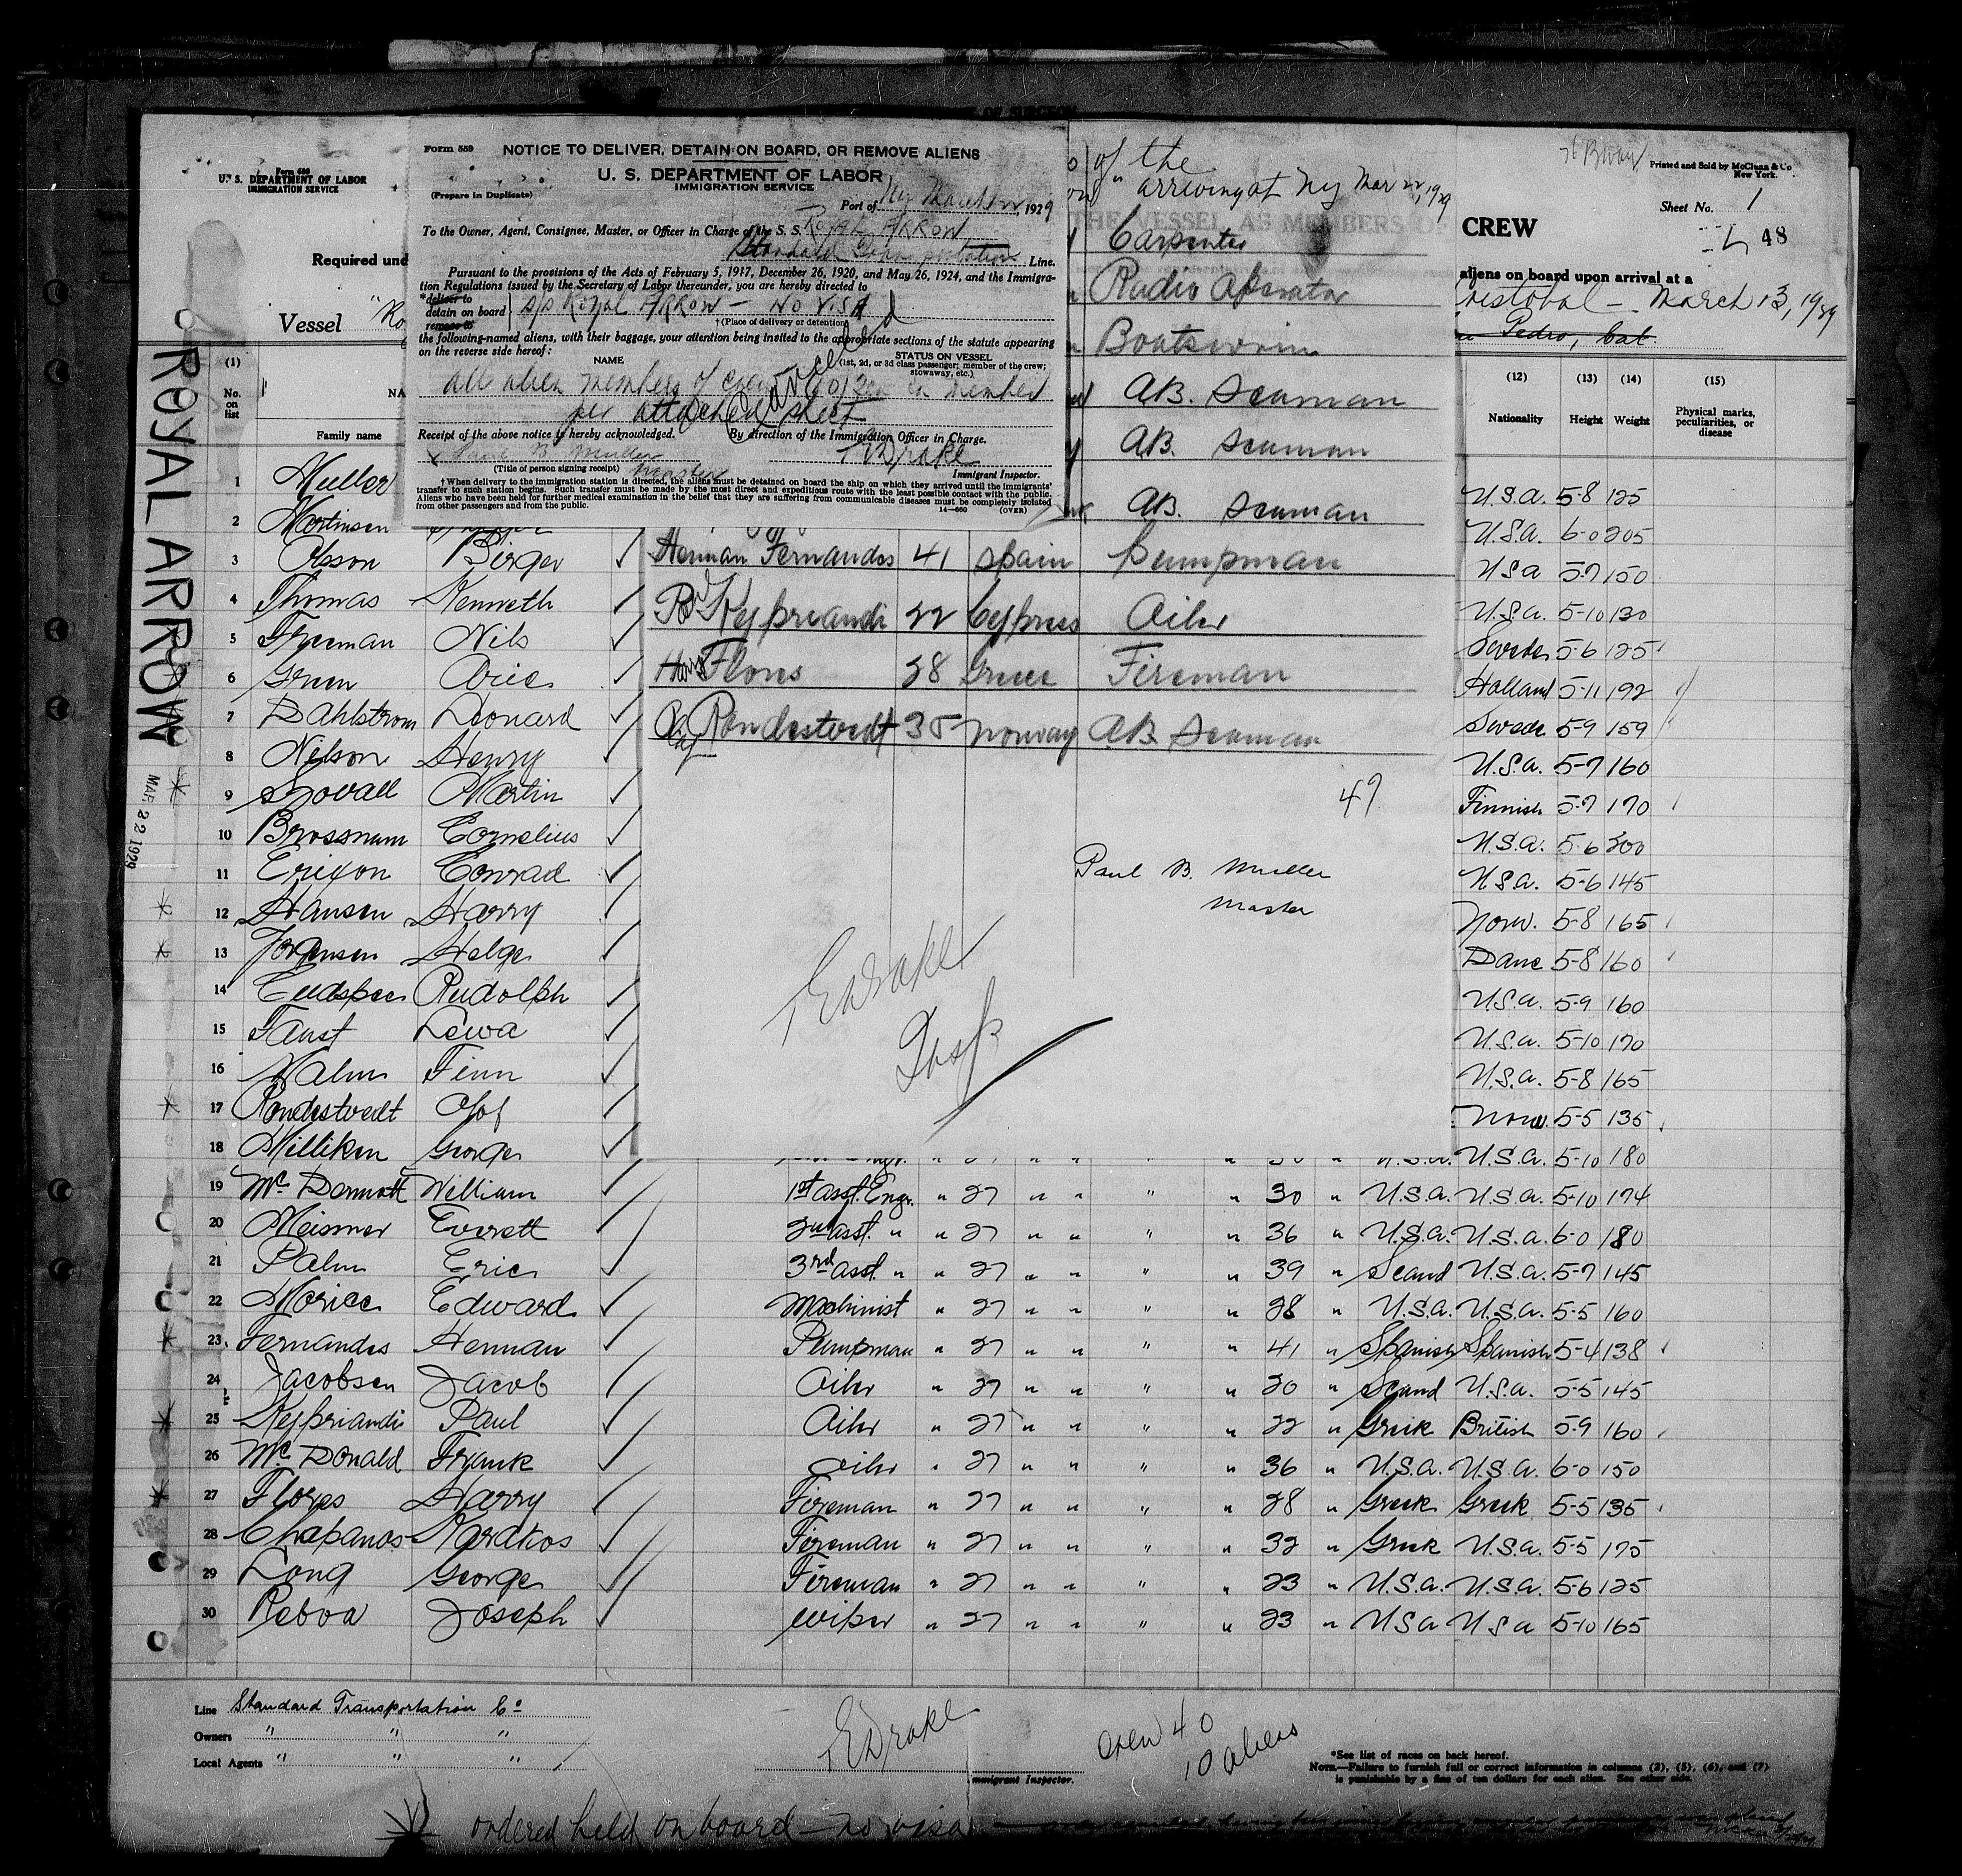 OF SURGEON
Form 689
U. S. DEPARTMENT OF LABOR
IMMIGRATION SERVICE
Required und
Vessel "Ro
(1)
No. on list
NA
Family name
ROYAL ARROW
MAR 22 1929
Form 559
NOTICE TO DELIVER, DETAIN ON BOARD, OR REMOVE ALIENS
U. S. DEPARTMENT OF LABOR
IMMIGRATION SERVICE
(Prepare in Duplicate)
Port of Ny March 22, 1929
To the Owner, Agent, Consignee, Master, or Officer in Charge of the S. S. Royal ARROW
Standard Transportation Line.
Pursuant to the provisions of the Acts of February 5, 1917, December 26, 1920, and May 26, 1924, and the Immigra-
tion Regulations issued by the Secretary of Labor thereunder, you are hereby directed to
*deliver to
detain on board
remove to
s/s Royal ARROW - No VISA
†(Place of delivery or detention)
the following-named aliens, with their baggage, your attention being invited to the appropriate sections of the statute appearing
on the reverse side hereof:
NAME
STATUS ON VESSEL
(1st, 2d, or 3d class passenger; member of the crew; stowaway, etc.)
all alien members of crew (10) member
per attached sheet
Cancelled
Receipt of the above notice is hereby acknowledged.
By direction of the Immigration Officer in Charge.
x Paul B Muller
Master
(Title of person signing receipt)
T E Drake
Immigrant Inspector.
†When delivery to the immigration station is directed, the aliens must be detained on board the ship on which they arrived until the immigrants'
transfer to such station begins. Such transfer must be made by the most direct and expeditious route with the least possible contact with the public.
Aliens who have been held for further medical examination in the belief that they are suffering from communicable diseases must be completely isolated
from other passengers and from the public.
14—660
(OVER)
of the
arriving at Ny Mar 22, 1929
THE VESSEL AS MEMBERS OF
Carpenter
Radio Operator
Boatswain
AB. Seaman
AB. Seaman
AB. Seaman
Herman Fernandes 41 Spain Pumpman
Kypriandi 22 Cypress Oiler
Flores 28 Greece Fireman
Rondestvedt 35 Norway AB Seaman
47
Paul B. Muller
Master
T E Drake
Insp
Printed and Sold by McClunn & Co
New York.
Sheet No. 1
CREW
48
aliens on board upon arrival at a
ristobal - March 13, 1929
n Pedro, Cal
(12) Nationality
(13) Height
(14) Weight
(15) Physical marks, peculiarities, or disease
1 Muller U.S.A. 5-8 125
2 Martinsen U.S.A. 6-0 205
3 Olsson Birger U.S.A 5-7 150
4 Thomas Kenneth U.S.A. 5-10 130
5 Freeman Nils Sweden 5-6 125
6 Gruen Aries Holland 5-11 192
7 Dahlstrom Leonard Swede 5-9 159
8 Nilson Henry U.S.A. 5-7 160
9 Sovall Martin Finnish 5-7 170
10 Brossnam Cornelius U.S.A. 5-6 200
11 Erixon Conrad U.S.A. 5-6 145
12 Hansen Harry Norw. 5-8 165
13 Jorgensen Helge Dane 5-8 160
14 Rudolph U.S.A. 5-9 160
15 Faust Lewa U.S.A. 5-10 170
16 Malm Finn U.S.A. 5-8 165
17 Rondestvedt Olof Norw. 5-5 135
18 Milliken George U.S.A. 5-10 180
19 Mc Dermott William 1st asst. Engr. " 27 " " " " 30 " U.S.A. U.S.A. 5-10 174
20 Meismer Everett 2nd asst. " " 27 " " " " 36 " U.S.A. U.S.A. 6-0 180
21 Palm Eric 3rd asst. " " 27 " " " " 39 " Scand U.S.A. 5-7 145
22 Morice Edward Machinist " 27 " " " " 28 " U.S.A. U.S.A. 5-5 160
23 Fernandes Herman Pumpman " 27 " " " " 41 " Spanish Spanish 5-4 138
24 Jacobsen Jacob Oiler " 27 " " " " 20 " Scand U.S.A. 5-5 145
25 Kypriandi Paul Oiler " 27 " " " " 22 " Greek British 5-9 160
26 Mc Donald Frank Oiler " 27 " " " " 36 " U.S.A. U.S.A. 6-0 150
27 Flores Harry Fireman " 27 " " " " 28 " Greek Greek 5-5 135
28 Chapanos Karakos Fireman " 27 " " " " 32 " Greek U.S.A. 5-5 175
29 Long George Fireman " 27 " " " " 23 " U.S.A. U.S.A. 5-6 125
30 Reboa Joseph Wiper " 27 " " " " 23 " U.S.A U.S.A 5-10 165
Line Standard Transportation Co
Owners " " "
Local Agents " " "
T E Drake
Immigrant Inspector.
Crew 40
10 aliens
*See list of races on back hereof.
NOTE.—Failure to furnish full or correct information in columns (2), (5), (6), and (7)
is punishable by a fine of ten dollars for each alien. See other side.
ordered held on board - no visa